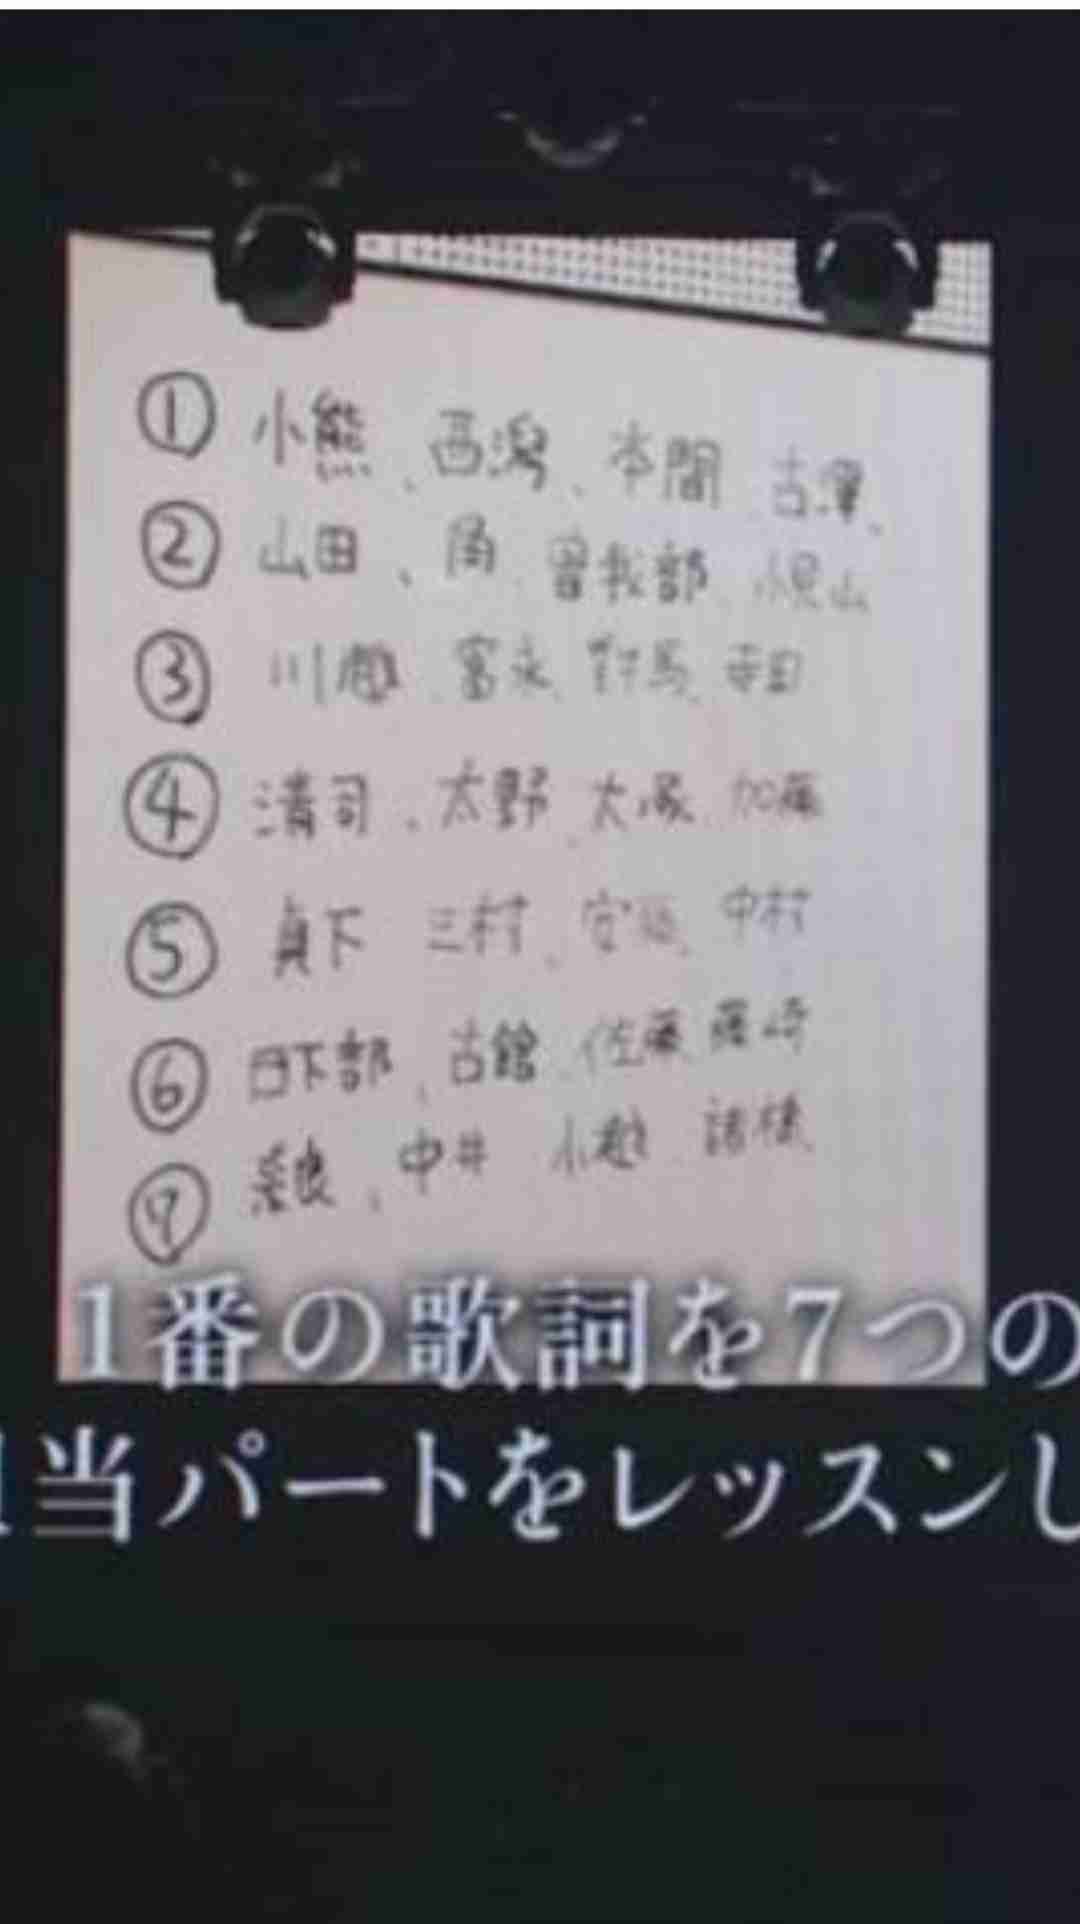 ① 小熊、西潟、本間 古澤、
② 山田、角 曽我部 小見山
③ 川越 富永 對馬 寺田
④ 清司、太野、大塚 加藤
⑤ 眞下 三村、安坂 中村
⑥ 日下部、古舘 佐藤 藤崎
⑦ 奈良、中井 小越 諸橋
1番の歌詞を7つの
当パートをレッスンし